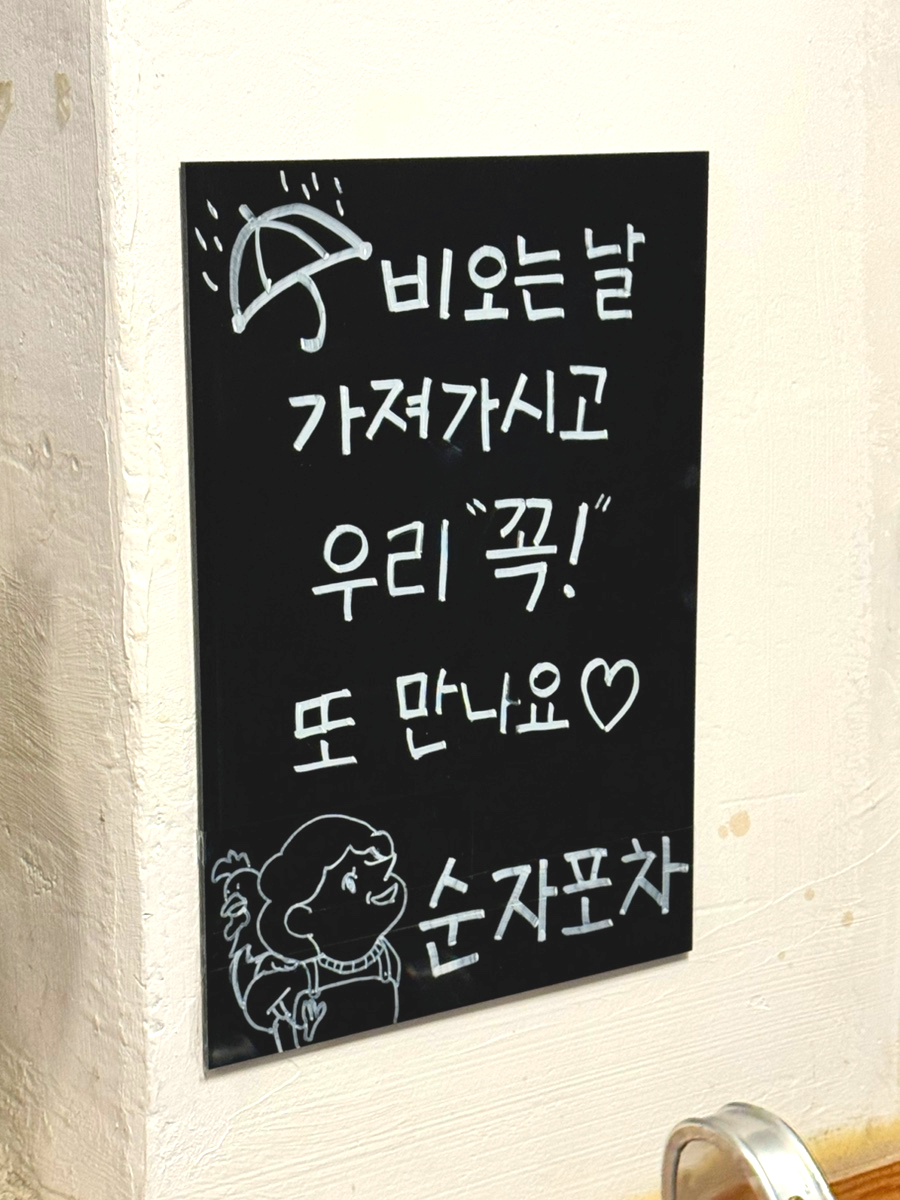 비오는 날
가져가시고
우리 "꼭!"
또 만나요♡
순자포차